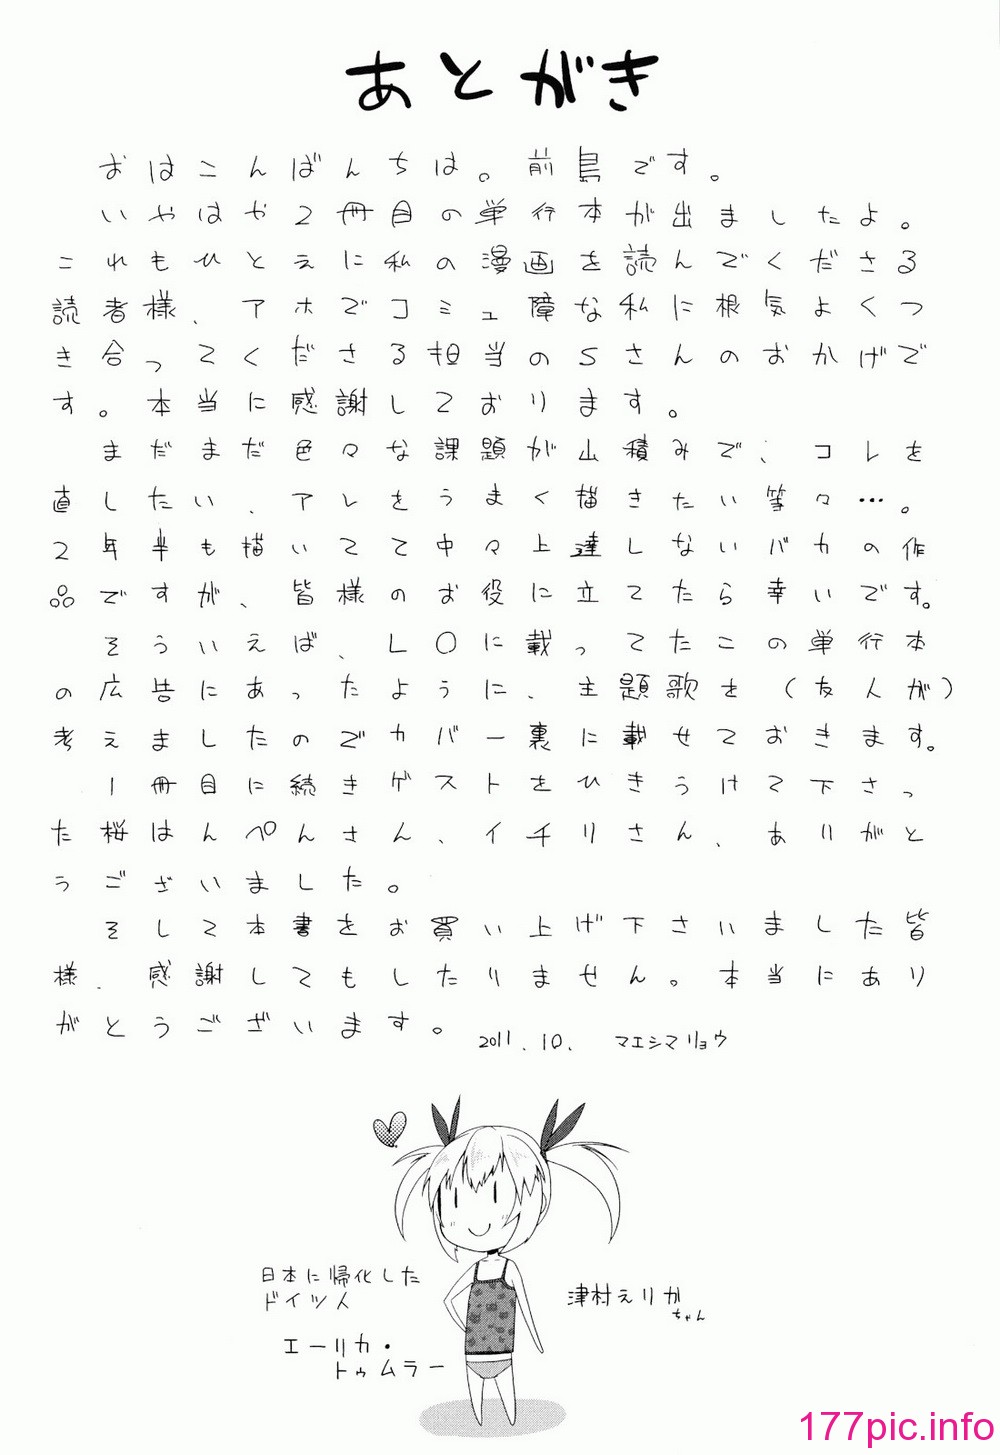 あとがき
おはこんばんちは。前島です。
いやはや2冊目の単行本が出ましたよ。
これもひとえに私の漫画を読んでくださる
読者様、アホでコミュ障な私に根気よくつ
き合ってくださる担当のSさんのおかげで
す。本当に感謝しております。
まだまだ色々な課題が山積みで、コレを
直したい、アレをうまく描きたい等々…。
2年半も描いてて中々上達しないバカの作
品ですが、皆様のお役に立てたら幸いです。
そういえば、LOに載ってたこの単行本
の広告にあったように、主題歌を(友人が)
考えましたのでカバー裏に載せておきます。
1冊目に続きゲストをひきうけて下さっ
た桜はんぺんさん、イチリさん、ありがと
うございました。
そして本書をお買い上げ下さいました皆
様、感謝してもしたりません。本当にあり
がとうございます。
2011.10. マエシマリョウ
日本に帰化した
ドイツ人
エーリカ・
トゥムラー
津村えりか
ちゃん
177pic.info